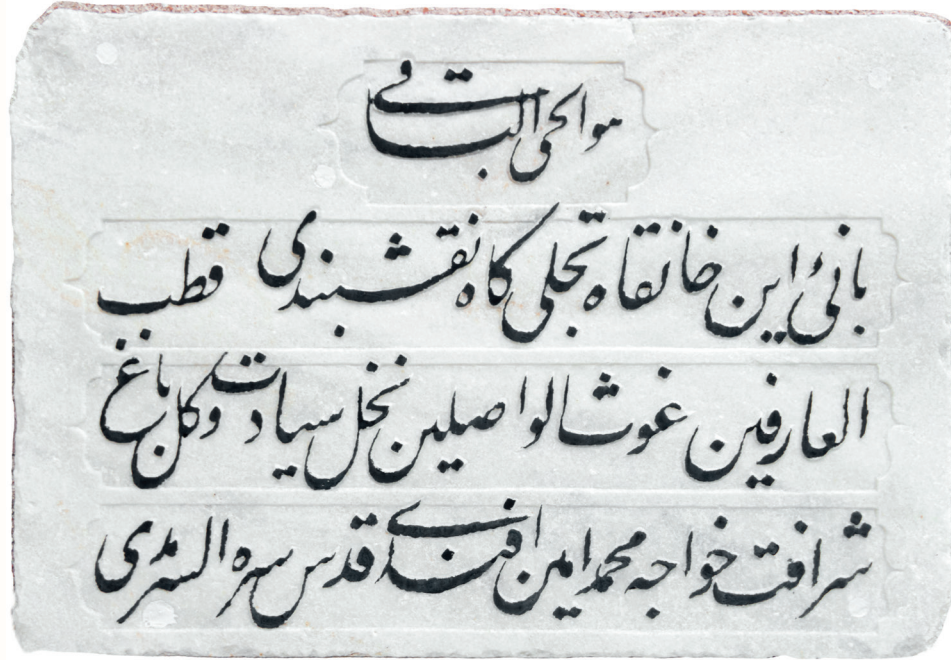 هو الحي الباقي
بانئ اين خانقاه تجلى كاه نقشبندى قطب
العارفين غوث الواصلين نخل سيادت وكل باغ
شرافت خواجه محمد امين افندى قدس سره السرمدى